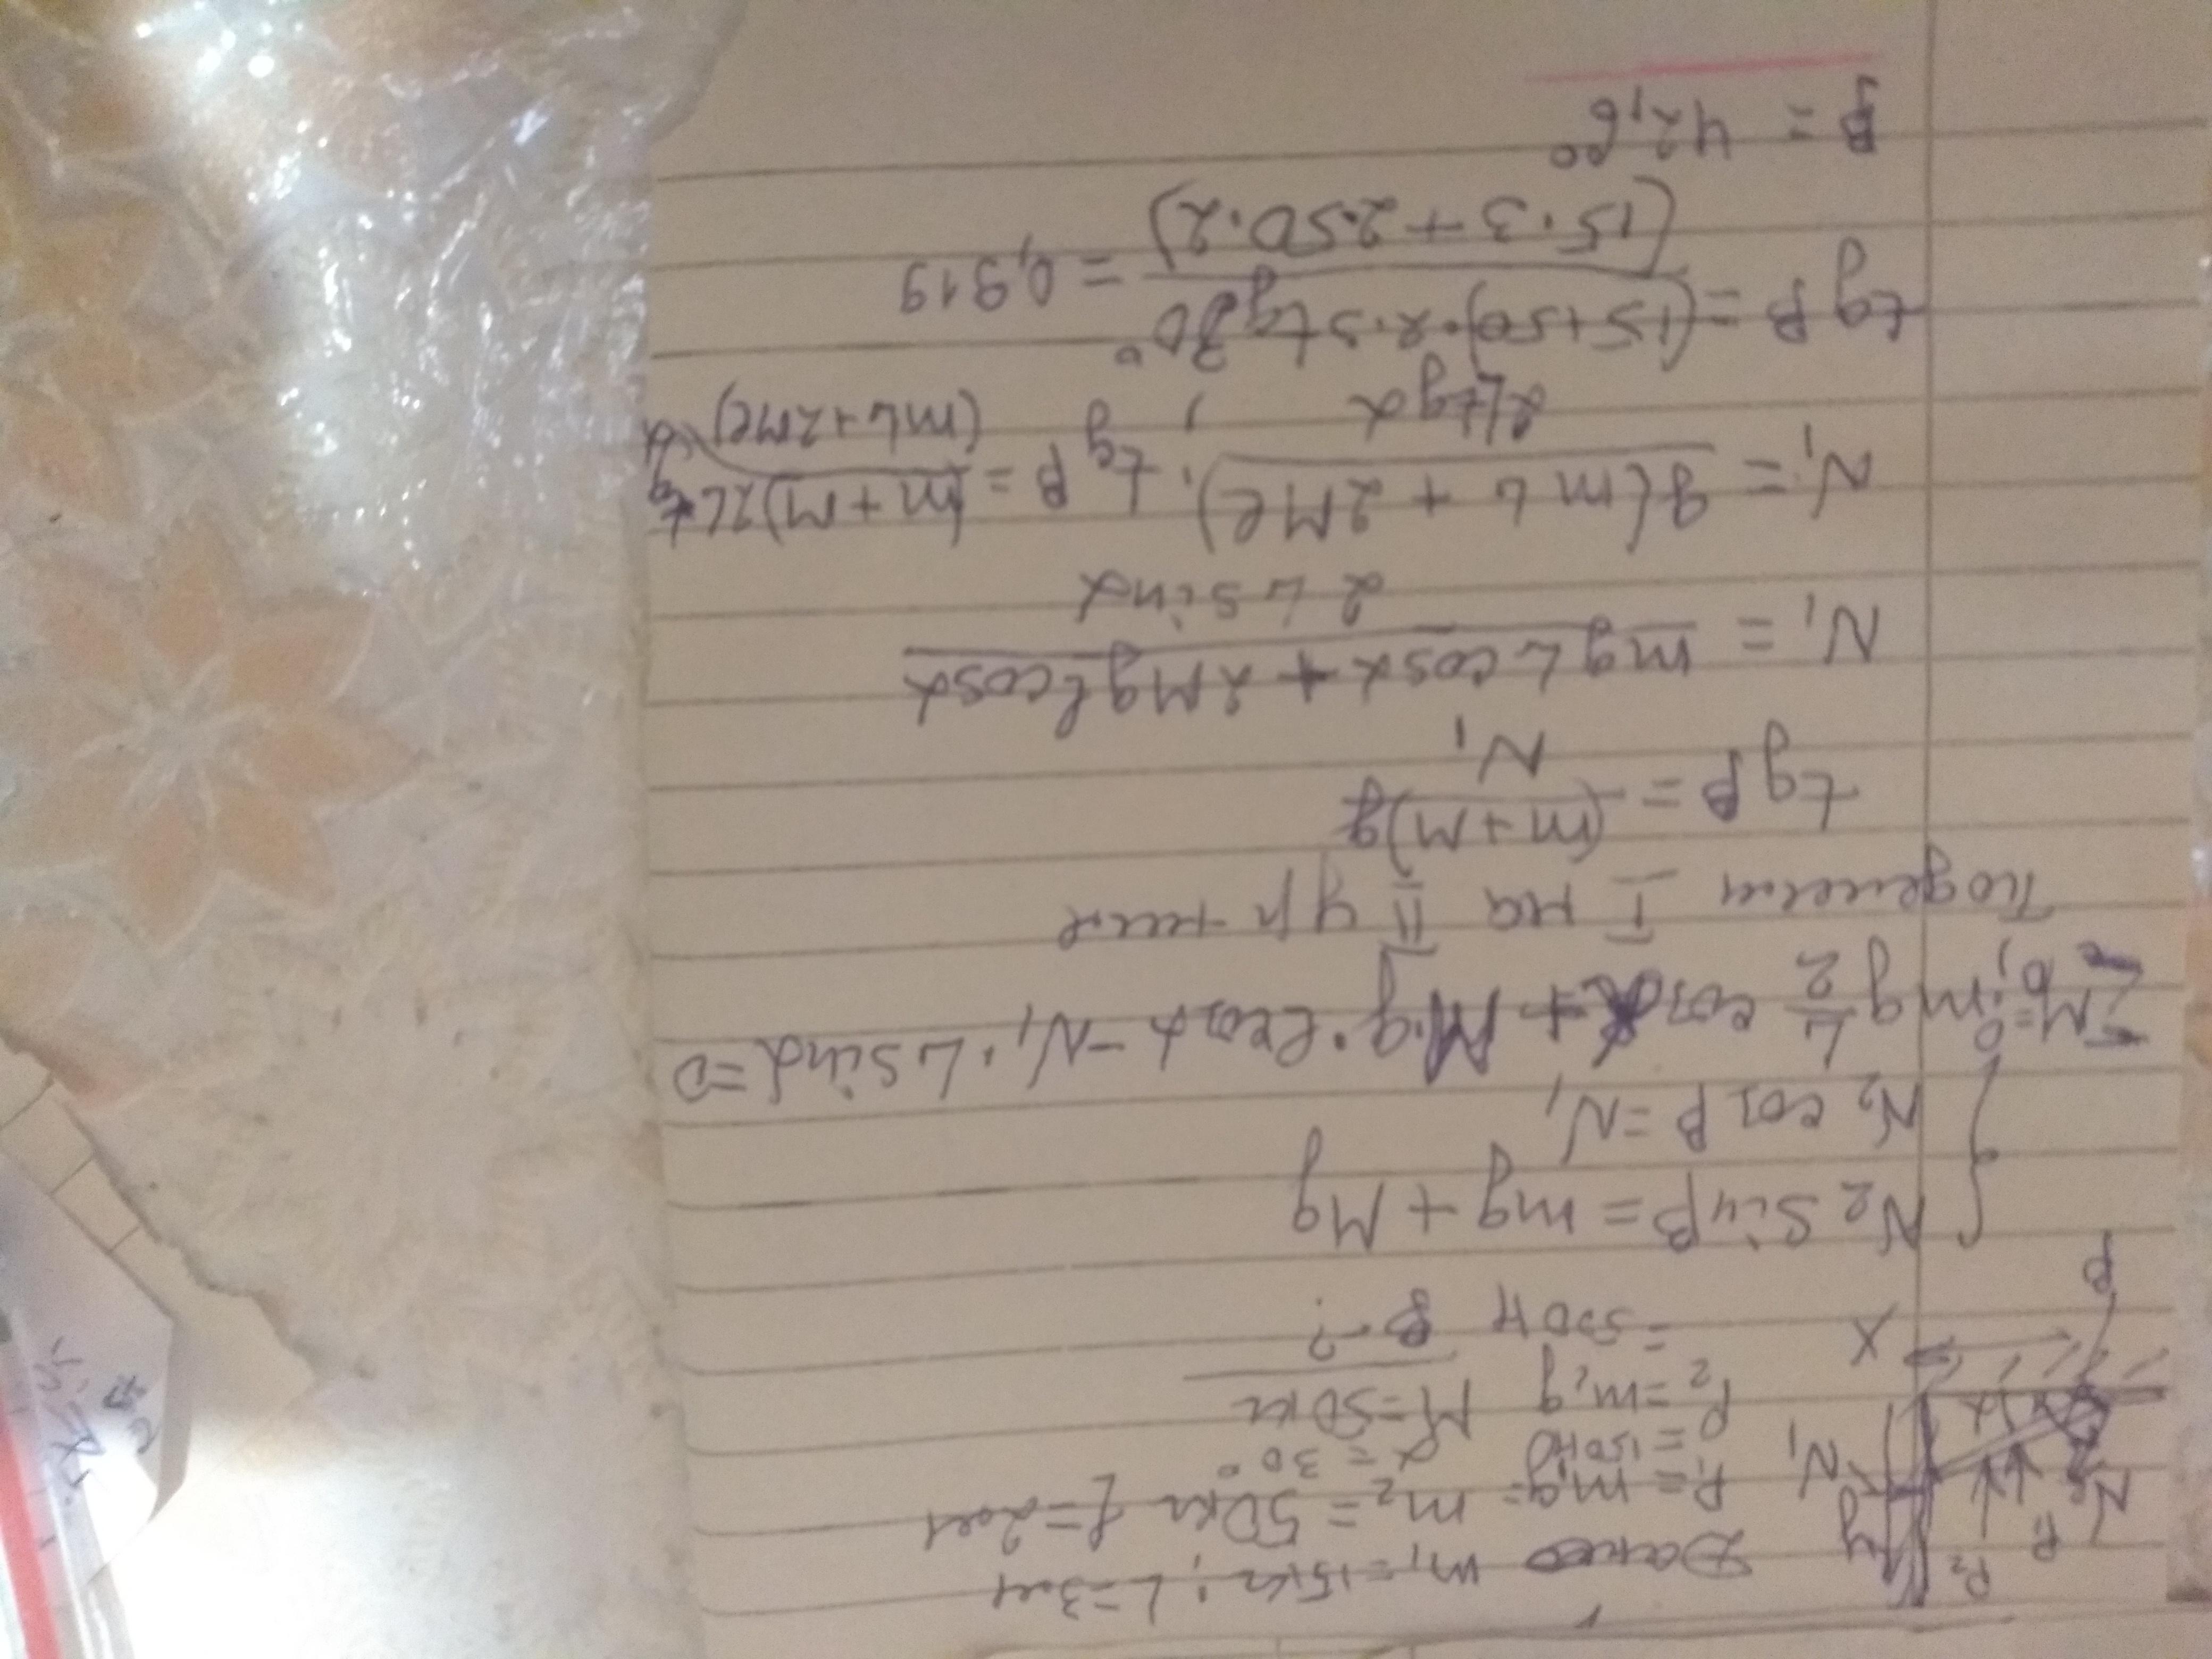 Дано m₁ = 15кг; L = 3м
P₁ = m₁g = m₂ = 50кг l = 2м
= 150Н α = 30°
P₂ = m₂g M = 50кг
= 500Н β - ?
y P₂ P₁ N₂ N₁ α X β
N₂ sinβ = mg + Mg
N₂ cos β = N₁
ΣM = 0; mg L/2 cosα + M·g·l cosα - N₁·L sinα = 0
I на II
tg β = (m+M)g / N₁
N₁ = mgL cosα + 2Mgl cosα / 2L sinα
N₁ = g(mL + 2Ml) / 2Ltgα ; tg β = (m+M)2Ltgα / (mL+2Ml)
tg β = (15+50)·2·3tg30° / (15·3+2·50·2) = 0,919
β = 42,6°